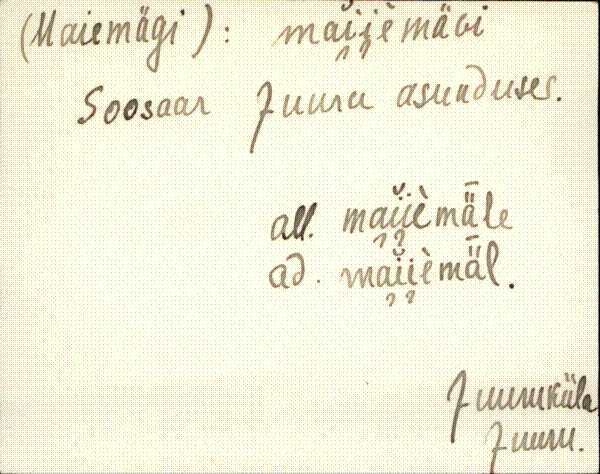 (Maiemägi): maĭi̯i̯èmäGi
Soosaar Juuru asunduses.
all. maĭi̯i̯èmǟle
ad. maĭi̯i̯èmǟl.
Juuruküla
Juuru.